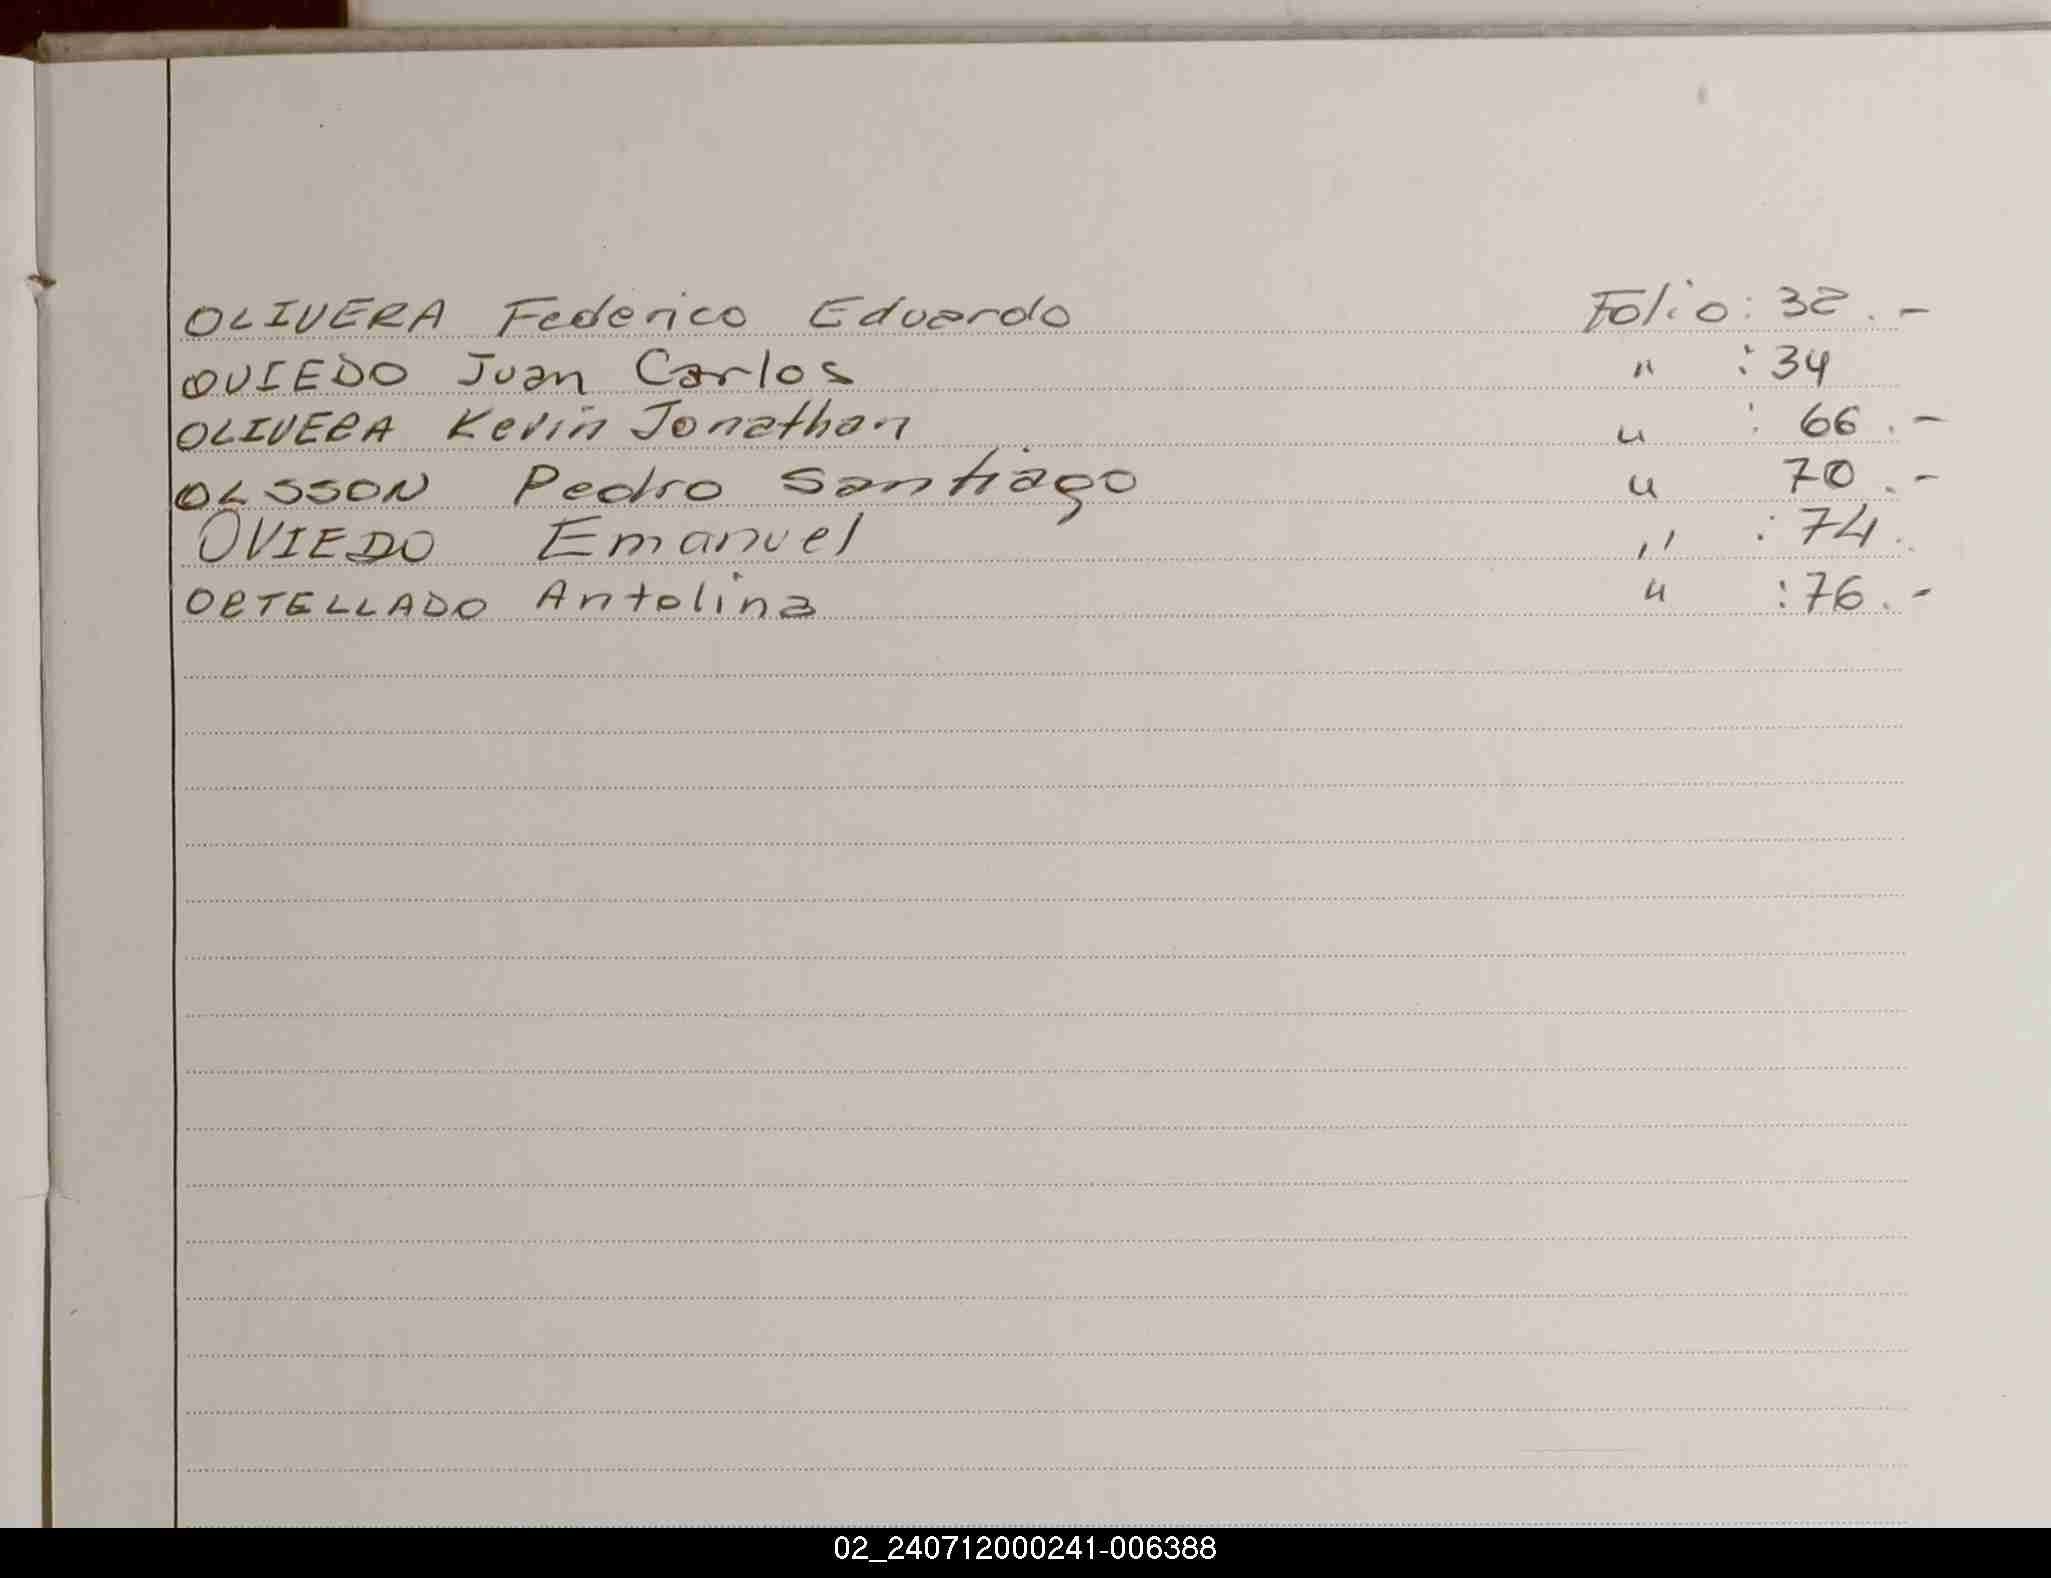 OLIVERA Federico Eduardo Folio: 32.-
OVIEDO Juan Carlos " : 34
OLIVERA Kevin Jonathan " : 66.-
OLSSON Pedro Santiago " 70.-
OVIEDO Emanuel " : 74.
ORTELLADO Antolina " : 76.-
02_240712000241-006388